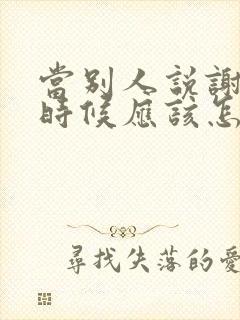 當別人說謝
時候應該怎
尋找失落的愛